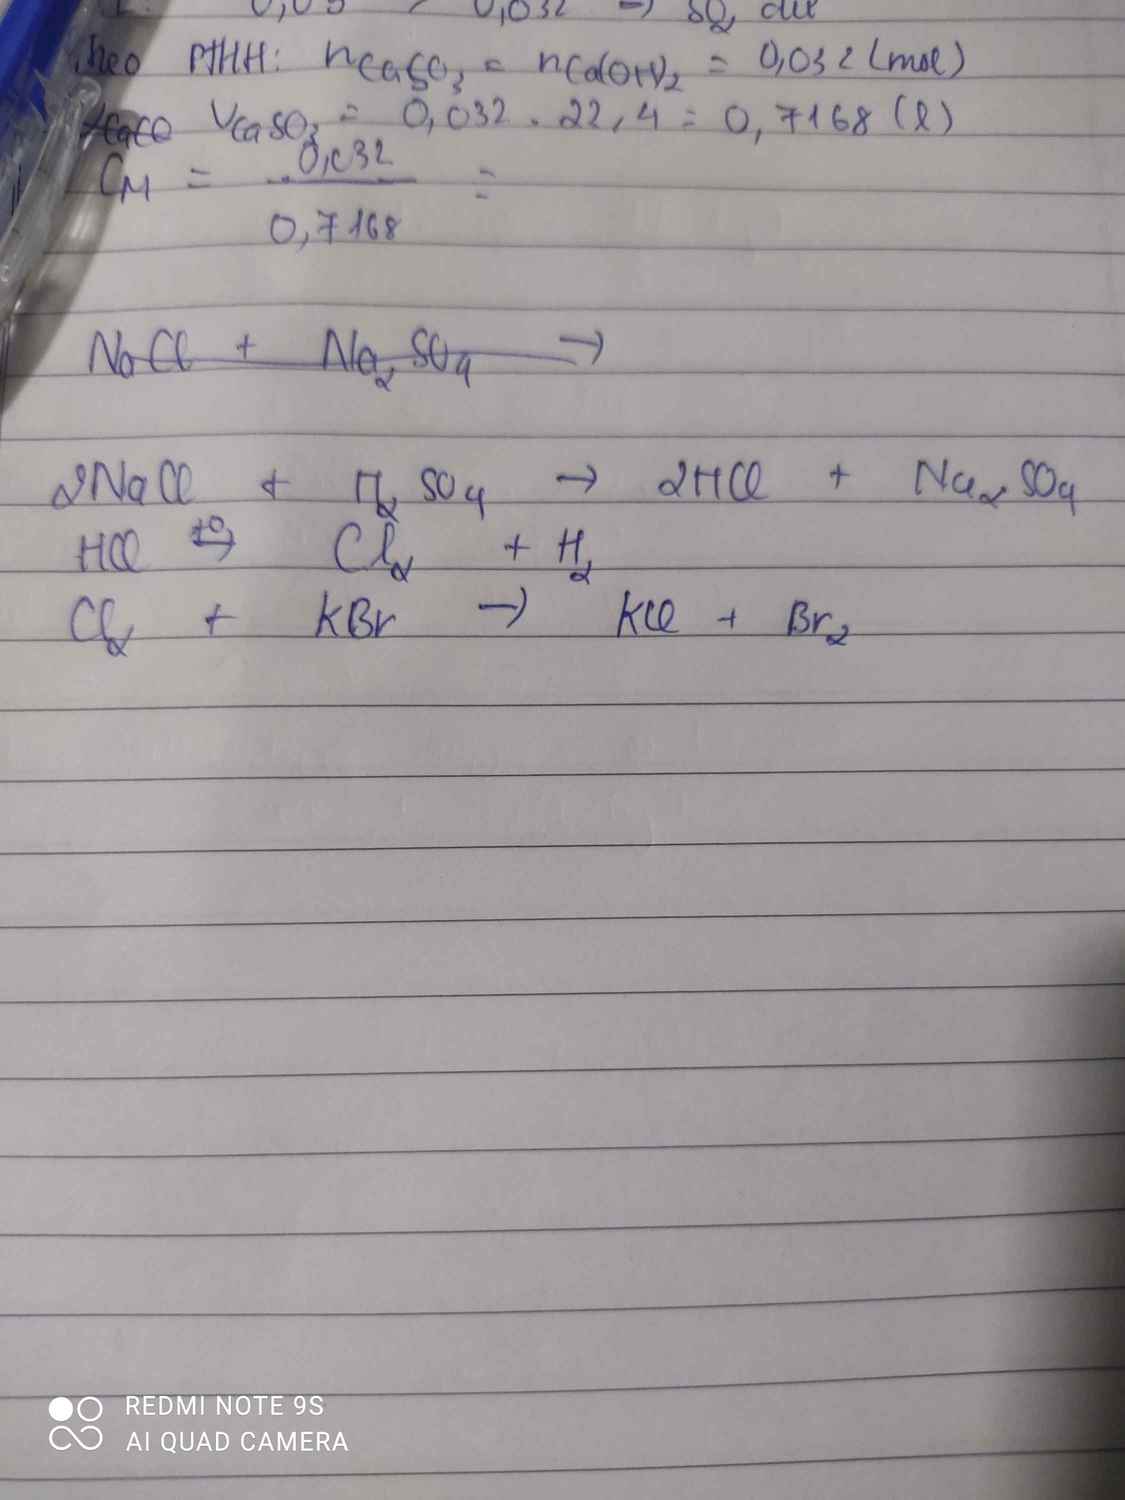 0,05 > 0,032 → SO2 dư
Theo PTHH: nCaSO3 = nCa(OH)2 = 0,032 (mol)
VCaSO3 = 0,032 . 22,4 = 0,7168 (l)
CM = 0,032 / 0,7168 =
NaCl + Na2SO4 →
2NaCl + H2SO4 → 2HCl + Na2SO4
HCl to⇋ Cl2 + H2
Cl2 + KBr → KCl + Br2
REDMI NOTE 9S
AI QUAD CAMERA